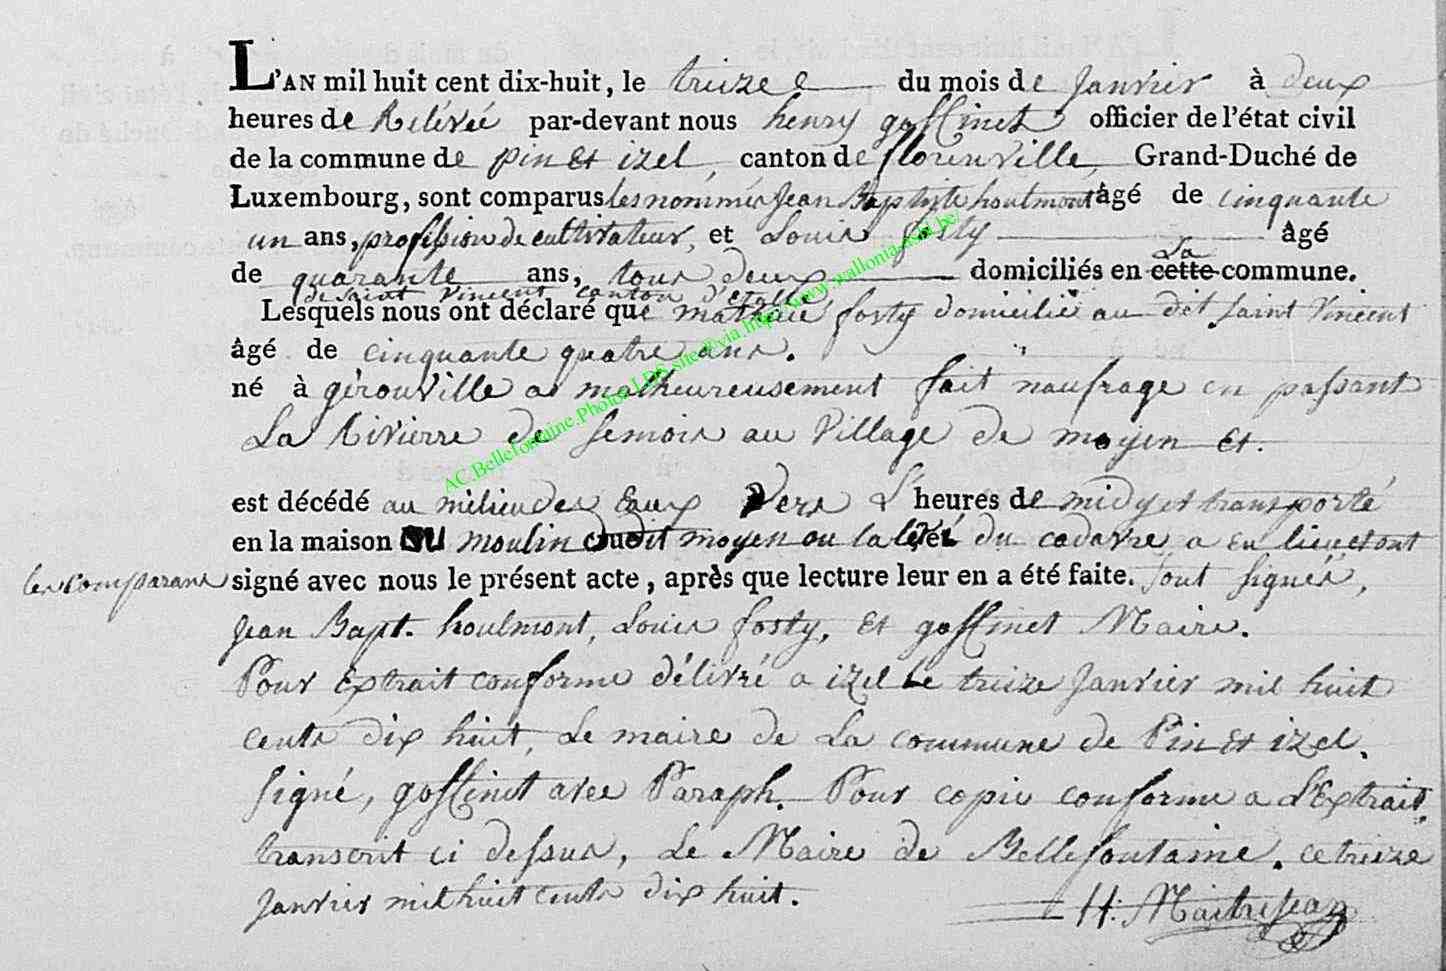 L'AN mil huit cent dix-huit, le treize du mois de Janvier à deux
heures de Relévée par-devant nous henry goffinet officier de l'état civil
de la commune de pin et izel, canton de florenville, Grand-Duché de
Luxembourg, sont comparus les nommés Jean Baptiste houlmont âgé de cinquante
un ans, profession de cultivateur, et Louis fosty âgé
de quarante ans, tous deux domiciliés en cette La commune.
de Saint Vincent canton d'etalle
Lesquels nous ont déclaré que mathieu fosty domicilié au dit Saint Vincent
âgé de cinquante quatre ans.
né à gérouville a malheureusement fait naufrage en passant
La Rivierre de Semois au Village de moyen et.
est décédé au milieu des Eaux Vers L'heures de midy et transporté
en la maison DU moulin dudit moyen ou la levé du cadavre a eu lieu et ont
les comparans signé avec nous le présent acte, après que lecture leur en a été faite. Sont signés,
Jean Bapt. houlmont, Louis fosty, Et goffinet Maire.
Pour Extrait conforme délivré a izel Le treize Janvier mil huit
cents dix huit, Le maire de La commune de Pin et izel.
signé, goffinet avec Paraph. Pour copie conforme a L'Extrait
transcrit ci dessus, Le Maire de Bellefontaine. ce treize
Janvier mil huit cents dix huit.
H: Maitrejean
AC.Bellefontaine.Photos LDS site via http://www.wallonia-asbl.be/